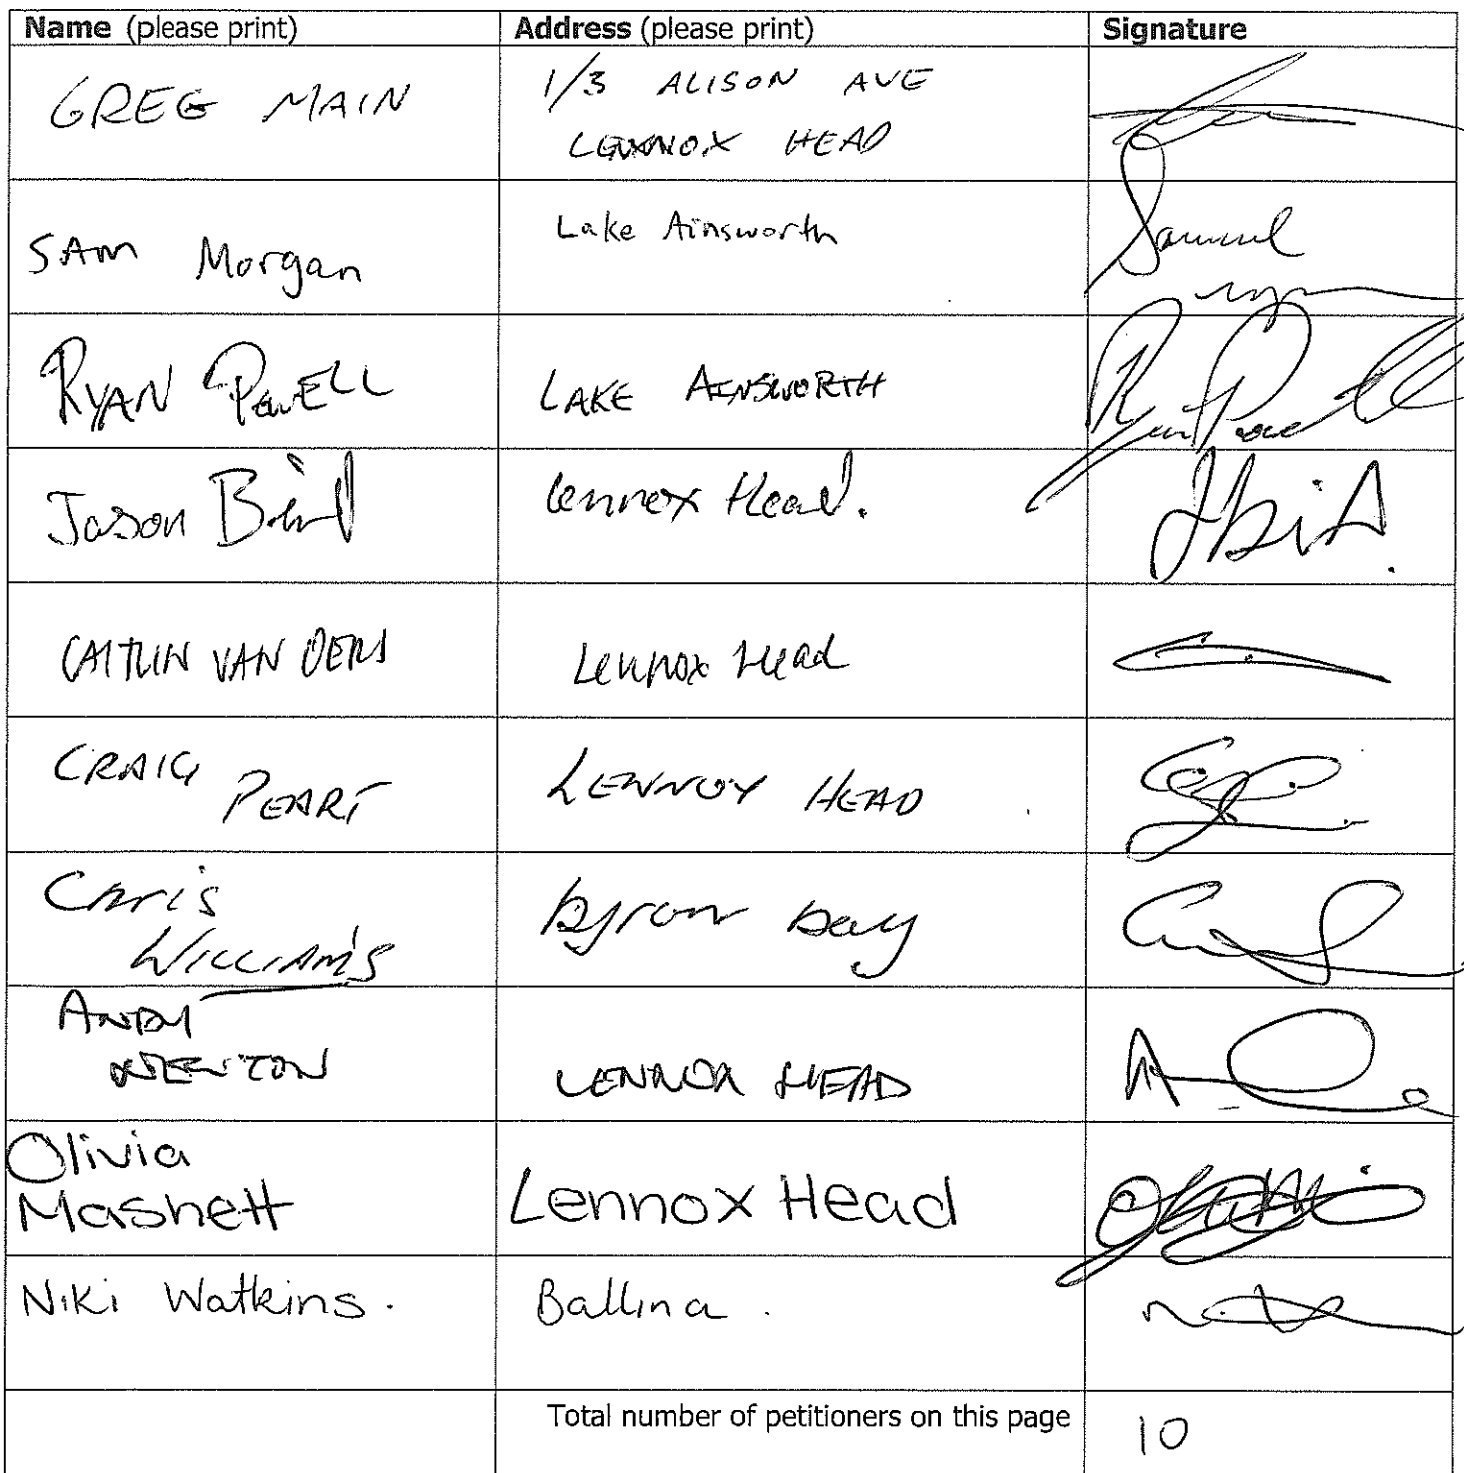 Name (please print) Address (please print) Signature
GREG MAIN 1/3 ALISON AVE
LENNOX HEAD
SAM Morgan Lake Ainsworth Samuel
RYAN POWELL LAKE AINSWORTH Ryan Powell
Jason Bird Lennox Head. JBird.
CAITLIN VAN OERS Lennox Head
CRAIG
PEART LENNOX HEAD
Chris
WILLIAMS Byron Bay
ANDY
NEWTON LENNOX HEAD
Olivia
Mashett Lennox Head
Niki Watkins. Ballina.
Total number of petitioners on this page 10